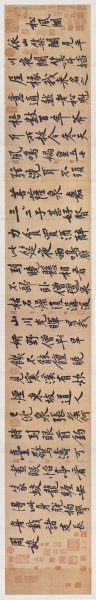 松風閣
依山築閣見平
川夜闌箕斗插
屋椽我來名之
意適然老松魁
梧數百年斧斤
所赦今參天
風鳴媧皇五十
弦洗耳不須
菩薩泉嘉
二三子甚好賢
力貧買酒醉
此筵夜雨鳴
廊到曉懸相看
不歸臥僧氈泉
枯石燥復潺湲
山川光輝為我
妍野僧早飢
不能饘曉見
寒溪有炊煙
東坡道人
已沈泉張侯何
時到眼前釣
臺驚濤可
晝眠怡亭看
篆蛟龍纏安
得此身脫拘
攣舟載諸友長
周旋